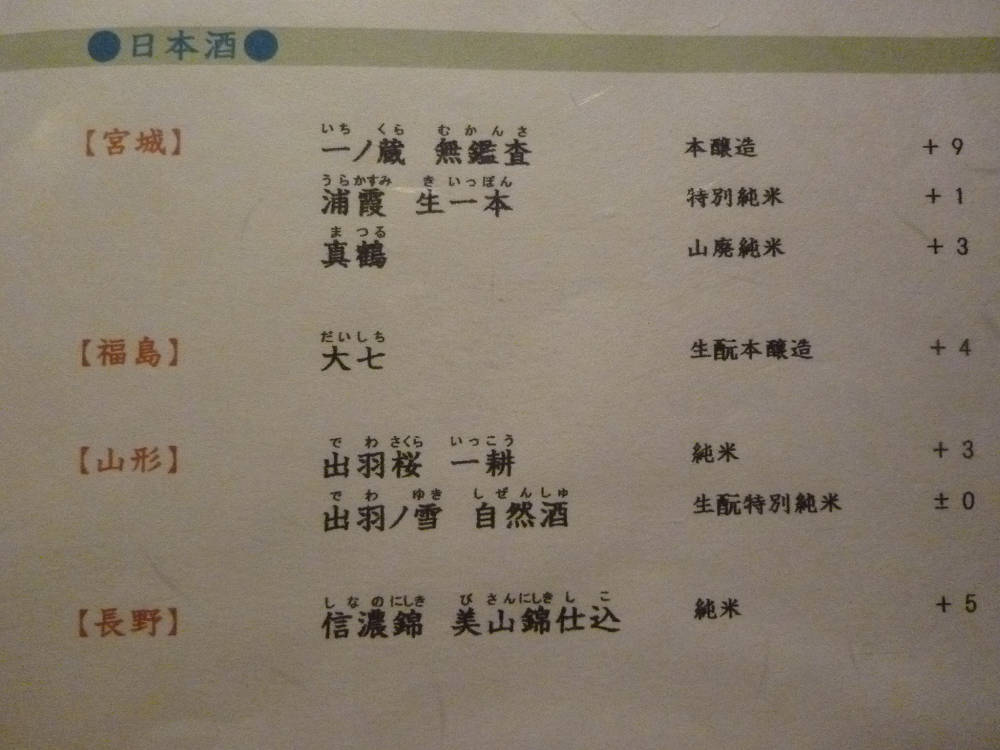 ●日本酒●
いち くら むかんさ
【宮城】 一ノ蔵 無鑑査 本醸造 +9
うらかすみ き いっぽん
浦霞 生一本 特別純米 +1
ま つる
真鶴 山廃純米 +3
だいしち
【福島】 大七 生酛本醸造 +4
で わ さくら いっこう
【山形】 出羽桜 一耕 純米 +3
で わ ゆき しぜんしゅ
出羽ノ雪 自然酒 生酛特別純米 ±0
しなのにしき び さんにしき し こ
【長野】 信濃錦 美山錦仕込 純米 +5